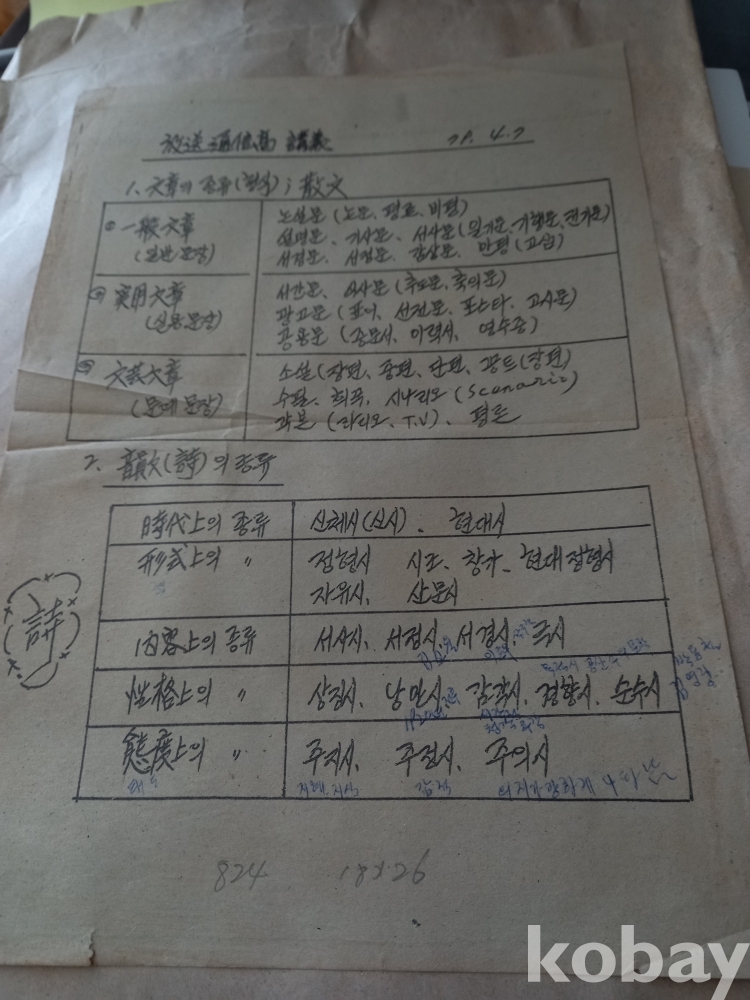 放送通信高 講義 78. 4. 7
1. 文章의 종류(형식) ; 散文
① 一般文章 (일반문장)
논설문 (논문, 평론, 비평)
설명문, 기사문, 서사문 (일기문, 기행문, 전기문)
서경문, 서정문, 감상문, 만평 (고십)
② 実用文章 (실용문장)
서간문, 식사문 (추도문, 축의문)
광고문 (표어, 선전문, 포스타, 고사문)
공용문 (공문서, 이력서, 영수증)
③ 文芸文章 (문예문장)
소설 (장편, 중편, 단편, 꽁트(장편)
수필, 희곡, 시나리오 (Scenario)
각본 (라디오, T.V), 평론
2. 韻文(詩)의 종류
詩
時代上의 종류 신체시(신시), 현대시
形式上의 〃 정형시 시조, 창가, 현대정형시
자유시, 산문시
内容上의 종류 서사시, 서정시, 서경시, 극시
性格上의 〃 상징시, 낭만시, 감각시, 경향시, 순수시
김영랑
態度上의 〃 주지시, 주정시, 주의시
태
지혜, 지식 감정 의지가 강하게 나타남
824 18X26
kobay